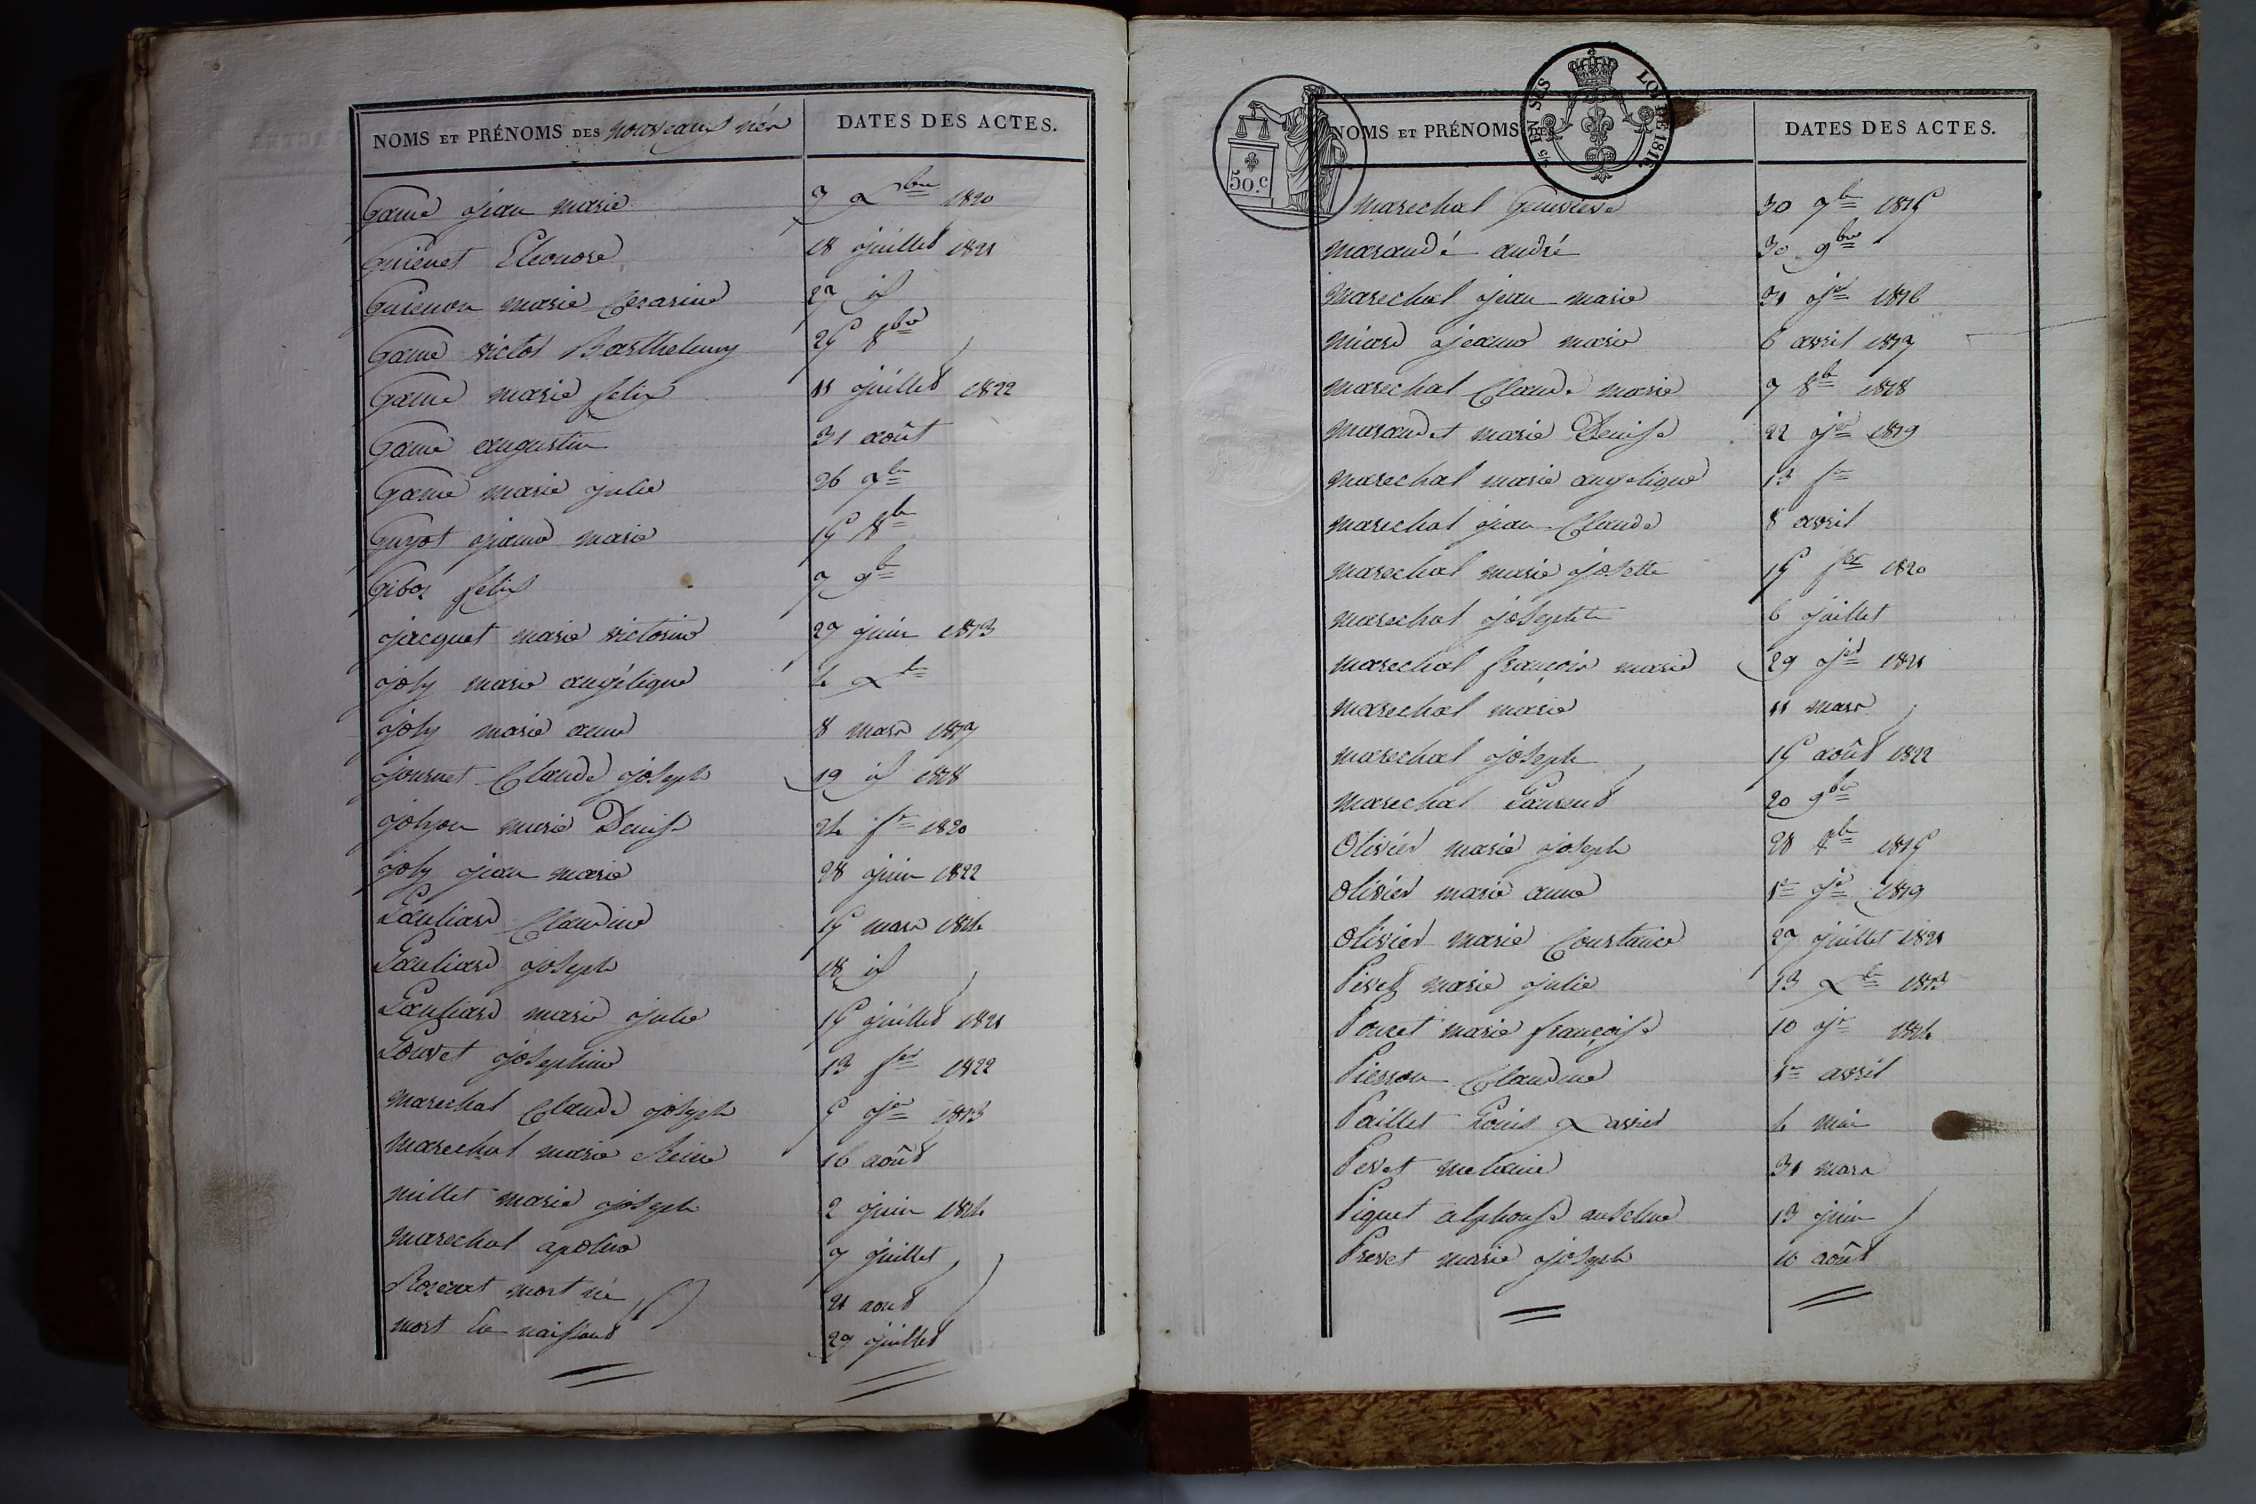 NOMS ET PRÉNOMS DES nouveaux nés DATES DES ACTES.
Game jean marie 7 Xbre 1820
Guienet Eleonore 18 juillet 1821
Guienon marie Cezarine 27 id
Game victor Barthelemy 25 8bre
Game marie felix 11 juillet 1822
Game augustin 31 août
Game marie julie 26 7bre
Guyot jeanne marie 15 8bre
Giboz felix 7 9bre
jacquet marie victorine 27 juin 1813
joly marie angélique 4 Xbre
joly marie anne 8 mars 1817
journet Claude joseph 19 id 1818
marie Denise 24 fr 1820
joly jean marie 28 juin 1822
Lauliard Claudine 15 mars 1814
Lauliard joseph 18 id
Lauliard marie julie 15 juillet 1821
Louvet josephine 13 fer 1822
marechal Claude joseph 5 jer 1813
marechal marie Reine 16 août
millet marie joseph 2 juin 1814
marechal apoline 7 juillet
Rozeret mort né 21 aout
mort en naissant 29 juillet
50.c
EN SES
LOI DE 1816.
NOMS ET PRÉNOMS DES DATES DES ACTES.
marechal Genevieve 30 7bre 1815
maraudé andré 30 9bre
marechal jean marie 31 jer 1816
miard jeanne marie 6 avril 1817
marechal Claude marie 7 8bre 1818
maraudet marie Denise 22 jer 1819
marechal marie angelique 13 fer
marechal jean Claude 8 avril
marechal marie josette 15 fer 1820
marechal josephte 6 juillet
marechal françois marie 29 jer 1821
marechal marie 11 mars
marechal joseph 15 août 1822
marechal Laurent 20 9bre
Olivier marie joseph 28 8bre 1815
Olivier marie anne 1er jer 1819
Olivier marie Constance 27 juillet 1821
marie julie 13 Xbre 1813
Poncet marie françoise 10 jr 1814
Pierron Claudine 1er avril
Paillet Louis Xavier 4 mai
Pevet melanie 31 mars
Piquet alphonse anselme 13 juin
Prevet marie joseph 10 août